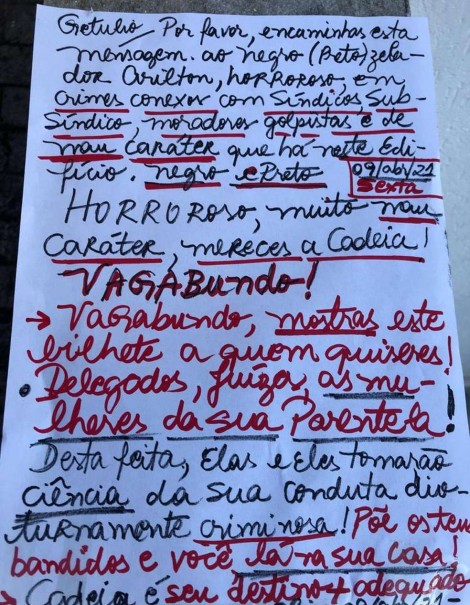 Getulio, Por favor, encaminhas esta
mensagem. ao negro (Preto) zela-
dor Carilton, HORROROSO, em
crimes conexos com Síndicos Sub-
Síndico, moradores golpistas e de
mau caráter que há neste Edi-
fício. negro e Preto
09/abr/21
Sexta
HORROROSO, muito mau
CARÁTER, mereces a Cadeia!
VAGABundo!
→ VAGABundo, mostras este
bilhete a quem quiseres!
Delegados, Juíza, as mu-
lheres da sua Parentela!
Desta feita, Elas e Eles tomarão
ciência da sua conduta diu-
turnamente criminosa! Põe os teus
bandidos e você lá na sua casa!
Cadeia é seu destino + adequado